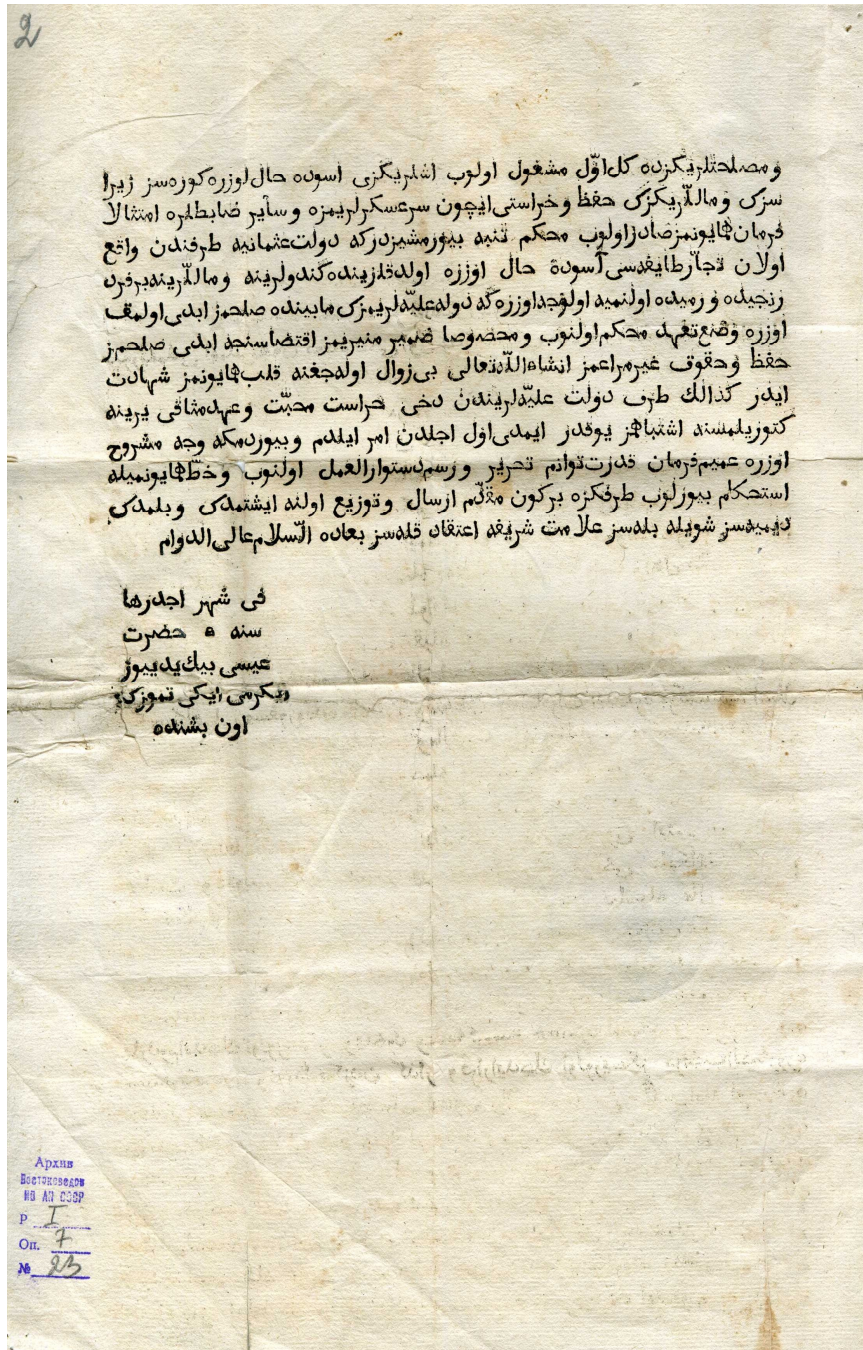 2
و مصلحتلریکزده کل اوّل مشغول اولوب اشلریکزی اسوده حال اوزره کوره سز زیرا
سزک و ماللّریکزک حفظ و خراستی ایچون سرعسکرلریمزه و سایر ضابطلره امتثالا
فرمان همایونمز صادر اولوب محکم تنبه بیورمشیزدرکه دولت عثمانیه طرفندن واقع
اولان تجّار طایفه سی آسودهٔ حال اوزره اولدقلرینده کندولرینه و ماللّرینه بر فرد
رنجیده و رمیده اولنمیه اولوجه اوزره که دوله علیّه لریمزک مابینده صلحمز ابدی اولمق
اوزره وضع تعهد محکم اولنوب و مخصوصا ضمیر منیریمز اقتضاسنجه ابدی صلحمز
حفظ و حقوق غیر مراعمز انشاء اللّه تعالی بی زوال اوله جغنه قلب همایونمز شهادت
ایدر کذالك طرف دولت علیّه لریندن دخی حراست محبّت و عهد مثاقی یرینه
کتوریلمسنه اشتباهمز یوقدر ایمدی اول اجلدن امر ایلدم و بیوردمکه وجه مشروح
اوزره عمیم فرمان قدرت توانم تحریر و رسم دستوارالعمل اولنوب و خطّ همایونمیله
استحکام بیورلوب طرفکزه بر کون مقدّم ارسال و توزیع اولنه ایشتمدک و بلمدک
دیمیه سز شویله بله سز علامت شریفه اعتقاد قله سز بعاده السّلام عالی الدوام
فی شهر اجدرها
سنه ه حضرت
عیسی بیك یدییوز
یکرمی ایکی تموزک
اون بشنده
Архив
Востоковедов
ИВ АН СССР
Р I
Оп. 7
№ 23